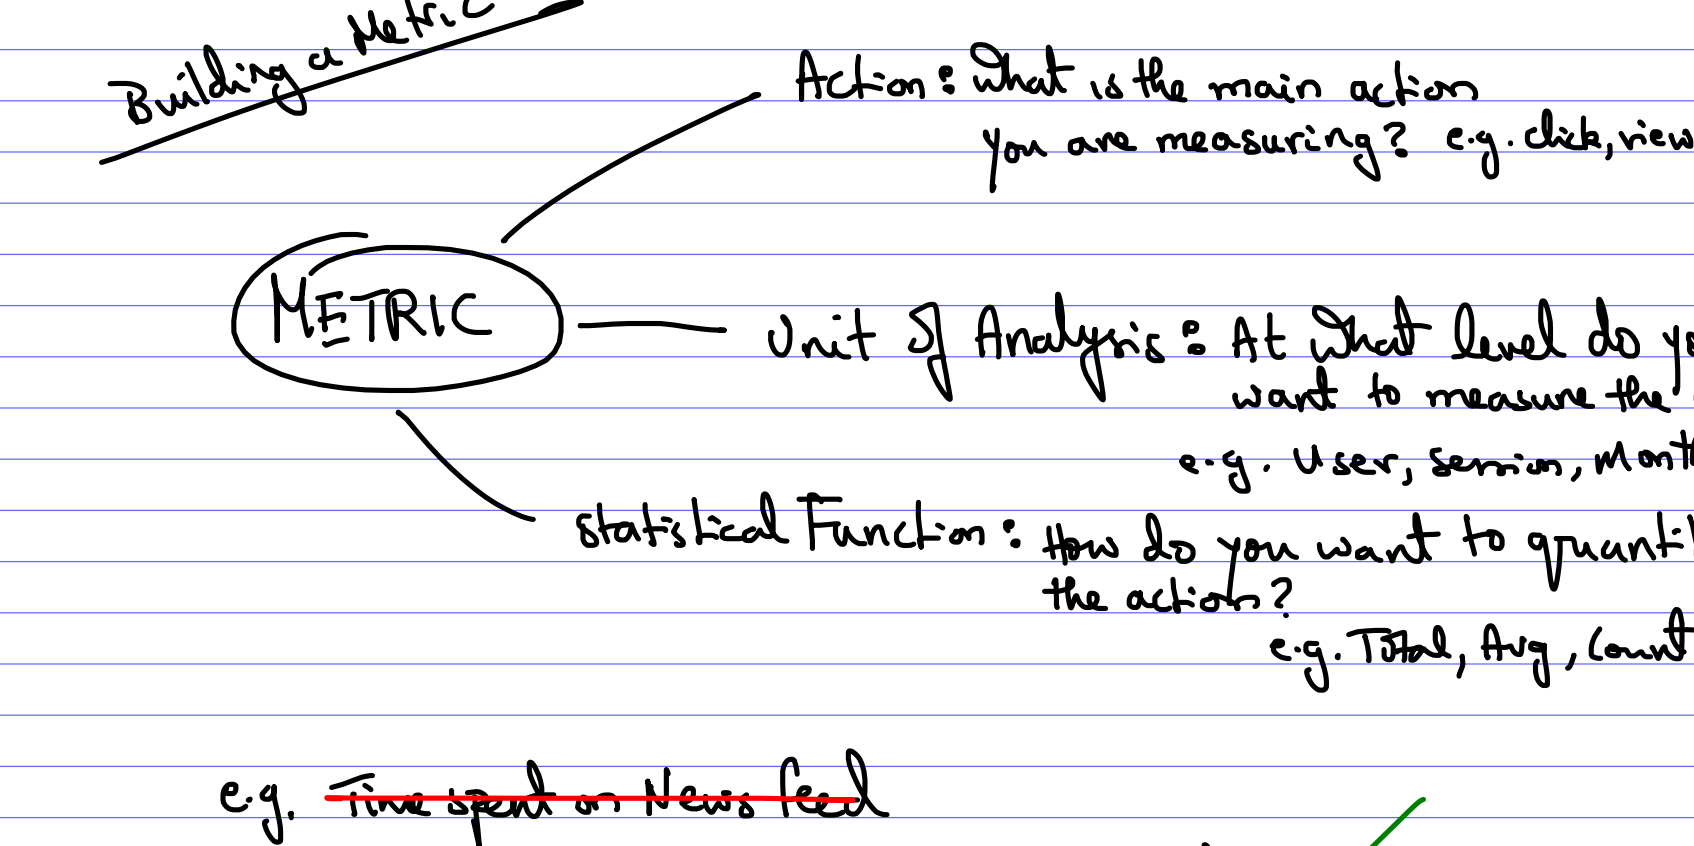 Building a Metric
Action: What is the main action
you are measuring? e.g. click, view
METRIC
Unit of Analysis: At what level do yo
want to measure the
e.g. User, session, Mont
Statistical Function: How do you want to quanti
the action?
e.g. Total, Avg, Count
e.g. Time spent on News feed